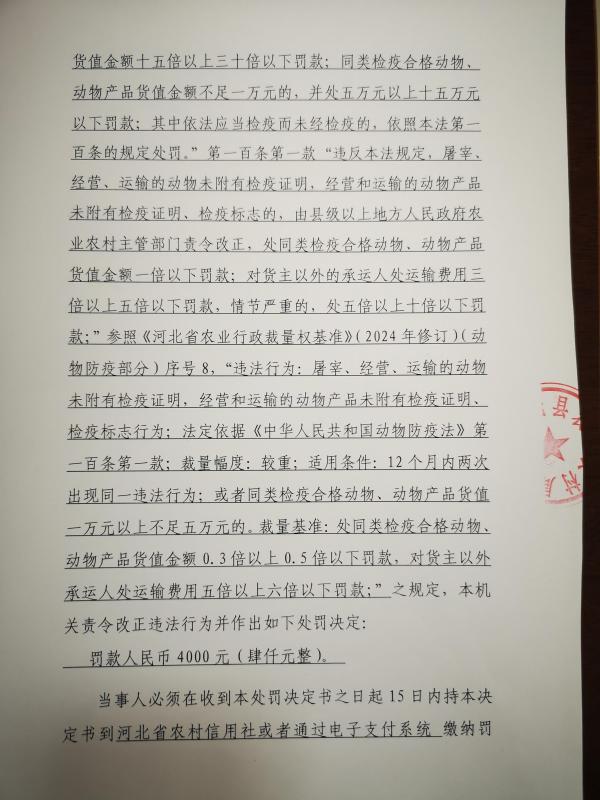 货值金额十五倍以上三十倍以下罚款；同类检疫合格动物、
动物产品货值金额不足一万元的，并处五万元以上十五万元
以下罚款；其中依法应当检疫而未经检疫的，依照本法第一
百条的规定处罚。”第一百条第一款“违反本法规定，屠宰、
经营、运输的动物未附有检疫证明，经营和运输的动物产品
未附有检疫证明、检疫标志的，由县级以上地方人民政府农
业农村主管部门责令改正，处同类检疫合格动物、动物产品
货值金额一倍以下罚款；对货主以外的承运人处运输费用三
倍以上五倍以下罚款，情节严重的，处五倍以上十倍以下罚
款；”参照《河北省农业行政裁量权基准》（2024年修订）（动
物防疫部分）序号8，“违法行为：屠宰、经营、运输的动物
未附有检疫证明，经营和运输的动物产品未附有检疫证明、
检疫标志行为；法定依据《中华人民共和国动物防疫法》第
一百条第一款；裁量幅度：较重；适用条件：12个月内两次
出现同一违法行为；或者同类检疫合格动物、动物产品货值
一万元以上不足五万元的。裁量基准：处同类检疫合格动物、
动物产品货值金额0.3倍以上0.5倍以下罚款，对货主以外
承运人处运输费用五倍以上六倍以下罚款；”之规定，本机
关责令改正违法行为并作出如下处罚决定：
罚款人民币4000元（肆仟元整）。
当事人必须在收到本处罚决定书之日起15日内持本决
定书到河北省农村信用社或者通过电子支付系统 缴纳罚
县
村局